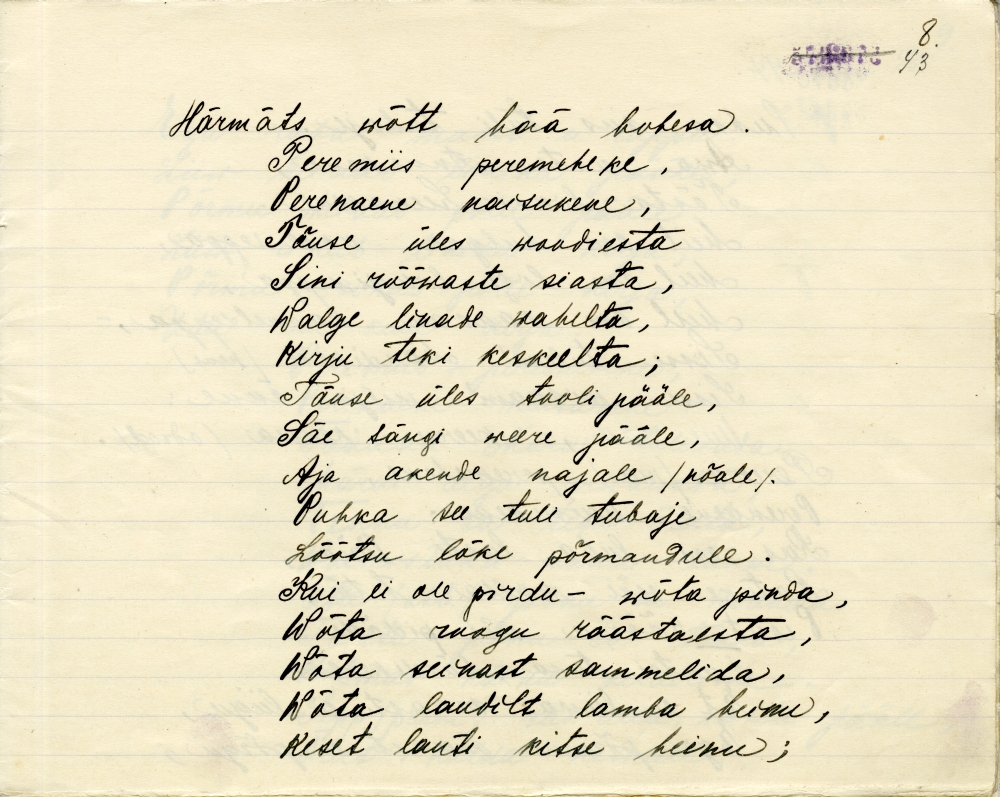 8.
43
Härmäts wõtt hää hobesa.
Peremiis peremeheke,
Perenaene naisukene,
Tõuse üles woodiesta
Sini rõõwaste seasta,
Walge linade wahelta,
Kirju teki keskeelta;
Tõuse üles tooli pääle,
Säe sängi weere pääle,
Aja akende najale /nõale/.
Puhka see tuli tubaje
Lõõtsu lõke põrmandule.
Kui ei ole pirdu – wõta pinda,
Wõta roogu räästaesta,
Wõta seinast sammelida,
Wõta laudilt lamba heinu,
Keset lauti kitse heinu;